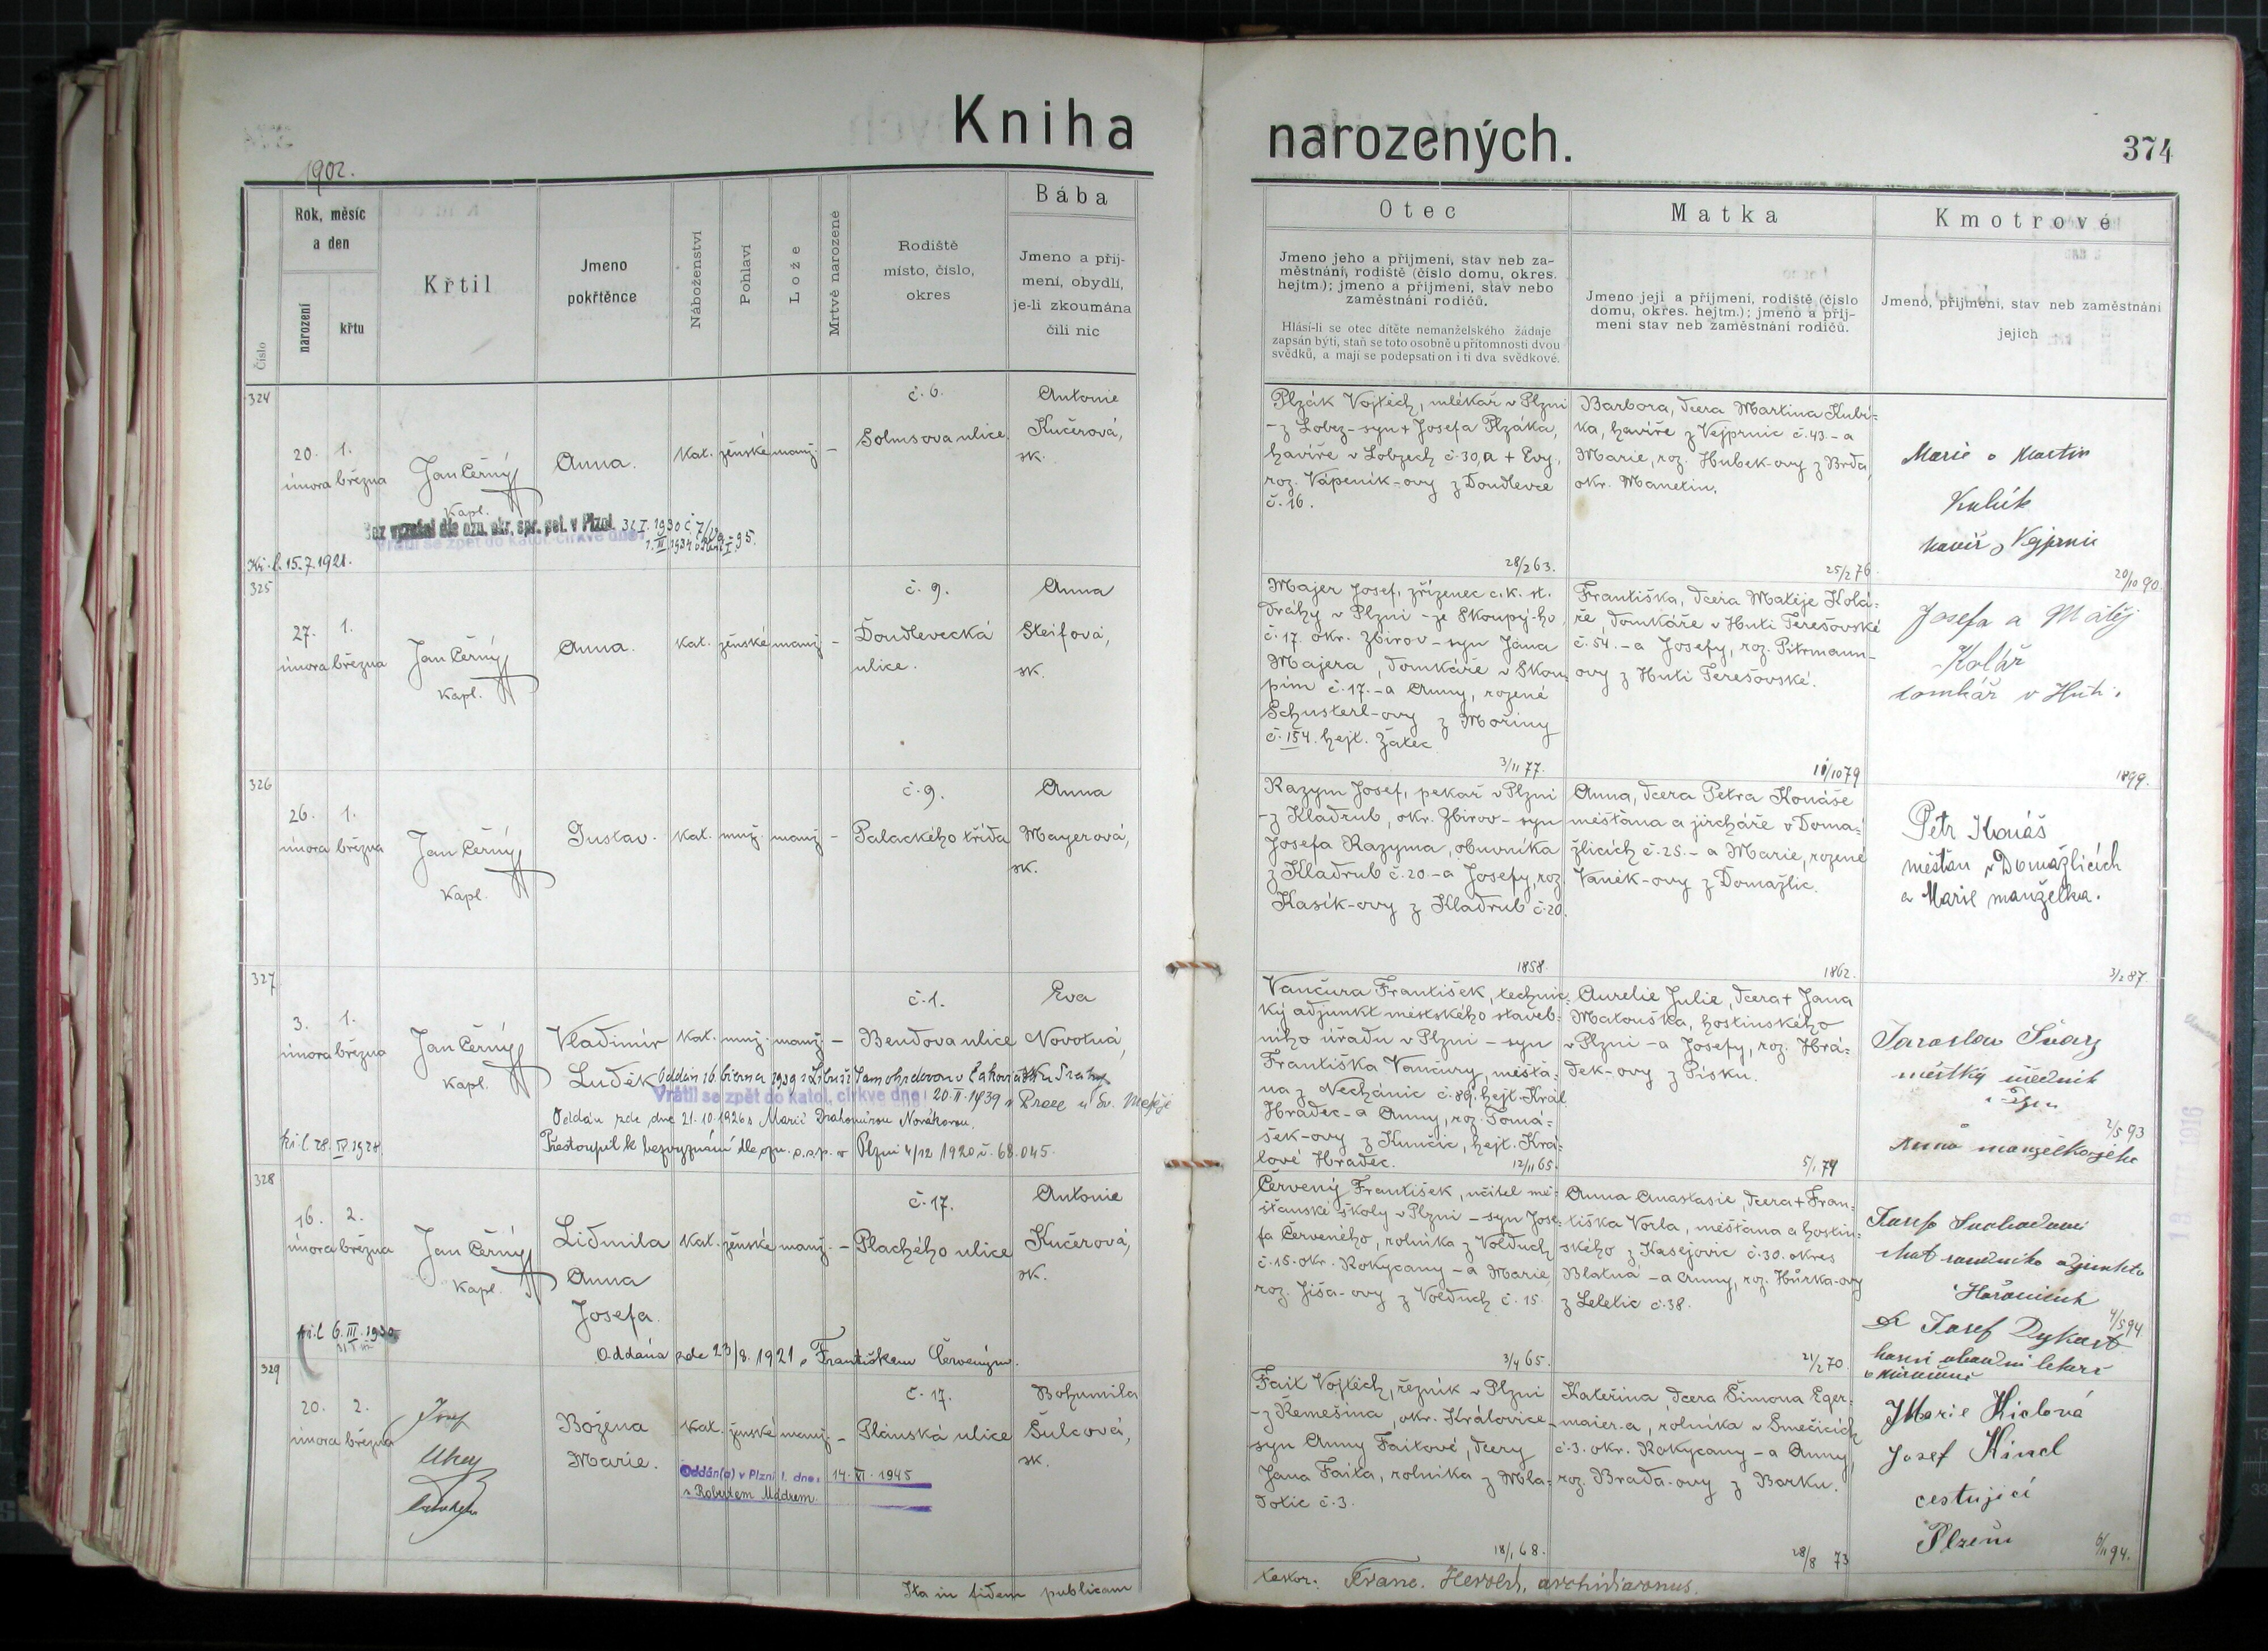 Kniha narozených.
374
1902.
Číslo
Rok, měsíc
a den
narození
křtu
Křtil
Jmeno
pokřtěnce
Náboženství
Pohlaví
Lože
Mrtvě narozené
Rodiště
místo, číslo,
okres
Bába
Jmeno a příj-
mení, obydlí,
je-li zkoumána
čili nic
Otec
Jmeno jeho a příjmení, stav neb za-
městnání, rodiště (číslo domu, okres.
hejtm.); jmeno a příjmení, stav nebo
zaměstnání rodičů.
Hlásí-li se otec dítěte nemanželského žádaje
zapsán býti, staň se toto osobně u přítomnosti dvou
svědků, a mají se podepsati on i ti dva svědkové.
Matka
Jmeno její a příjmení, rodiště (číslo
domu, okres. hejtm.); jmeno a příj-
mení stav neb zaměstnání rodičů.
Kmotrové
Jmeno, příjmení, stav neb zaměstnání
jejich
324
20. 1.
února března
Jan Černý
kapl.
Anna.
kat. ženské manž. –
č. 6.
Solmsova ulice
Antonie
Kučerová,
sk.
Vrátil se zpět do katol. církve dne:
Kř. l. 15.7.1921.
Plzák Vojtěch, mlékař v Plzni
– z Lobez – syn + Josefa Plzáka,
havíře v Lobzech č. 30, a + Evy,
roz. Vápeník-ovy z Doudlevce
č. 16.
28/2 63.
Barbora, dcera Martina Kubí-
ka, havíře z Vejprnic č. 43. – a
Marie, roz. Hubek-ovy z Brda,
okr. Manetín.
25/2 76.
Marie a Martin
Kubík
havíř z Vejprnic
20/10 90.
325
27. 1.
února března
Jan Černý
kapl.
Anna.
kat. ženské manž. –
č. 9.
Doudlevecká
ulice.
Anna
Steifová,
sk.
Majer Josef, zřízenec c. k. st.
dráhy v Plzni – ze Skoupý-ho
č. 17. okr. Zbirov – syn Jana
Majera, domkáře v Skou-
pím č. 17. – a Anny, rozené
Schusterl-ovy z Mořiny
č. 154. hejt. Žatec.
3/11 77.
Františka, dcera Matěje Kolá-
ře, domkáře v Huti Terešovské
č. 54. – a Josefy, roz. Pitrmann-
ovy z Huti Terešovské.
10/10 79
Josefa a Matěj
Kolář
domkář v Huti.
1899.
326
26. 1.
února března
Jan Černý
kapl.
Gustav.
kat. muž. manž. –
č. 9.
Palackého třída
Anna
Mayerová,
sk.
Razym Josef, pekař v Plzni
– z Kladrub, okr. Zbirov – syn
Josefa Razyma, obuvníka
z Kladrub č. 20. – a Josefy, roz.
Kasík-ovy z Kladrub č. 20.
1858.
Anna, dcera Petra Konáše
měšťana a jircháře v Doma-
žlicích č. 25. – a Marie, rozené
Vaněk-ovy z Domažlic.
1862.
Petr Konáš
měšťan v Domažlicích
a Marie manželka.
3/2 87.
327
3. 1.
února března
Jan Černý
kapl.
Vladimír
Luděk
kat. muž. manž. –
č. 1.
Bendova ulice
Eva
Novotná,
Oddán 16. března 1939 s Libuší
Vrátil se zpět do katol. církve dne: 20. II. 1939 v Praze u Sv. Matěje
Oddán zde dne 21.10.1926 s Marií Drahomírou Novákovou.
Přestoupil k bezvyznání dle ozn. o.s.p. v Plzni 4/12 1920 č. 68.045.
kř. l. 28. IV. 1928.
Vančura František, technic-
ký adjunkt městského staveb-
ního úřadu v Plzni – syn
Františka Vančury, měšťa-
na z Nechánic č. 89. hejt. Král.
Hradec – a Anny, roz. Tomá-
šek-ovy z Kunčic, hejt. Krá-
lové Hradec.
12/11 65.
Aurelie Julie, dcera + Jana
Matouška, hostinského
v Plzni – a Josefy, roz. Hrá-
dek-ovy z Písku.
5/1 74
Jaroslav
městský úředník
Anna manželka jeho
2/5 93
328
16. 2.
února března
Jan Černý
kapl.
Lidmila
Anna
Josefa.
kat. ženské manž. –
č. 17.
Plachého ulice
Antonie
Kučerová,
sk.
kř. l. 6. III. 1930
Oddána zde 23/8. 1921 s Františkem Červeným.
Červený František, učitel mě-
šťanské školy v Plzni – syn Jose-
fa Červeného, rolníka z Volduch
č. 15. okr. Rokycany – a Marie,
roz. Jíša-ovy z Volduch č. 15.
3/4 65.
Anna Anastasie, dcera + Fran-
tiška Vorla, měšťana a hostin-
ského z Kasejovic č. 30. okres
Blatná – a Anny, roz. Hůrka-ovy
z Leletic č. 38.
21/2 70.
Josef
Dr Josef Dykast
4/5 94.
329
20. 2.
února března
Josef
Božena
Marie.
kat. ženské manž. –
č. 17.
Plánská ulice
Bohumila
Šulcová,
sk.
Oddán(a) v Plzni I. dne: 14. VI. 1945
s Robertem Mádrem.
Fait Vojtěch, řezník v Plzni
– z Řemešína, okr. Královice –
syn Anny Faitové, dcery
Jana Faita, rolníka z Mla-
dotic č. 3.
18/1 68.
Kateřina dcera Šimona Eger-
maier-a, rolníka v Smečicích
č. 3. okr. Rokycany – a Anny,
roz. Brada-ovy z Borku.
28/8 73
Marie Hiclová
Josef Hincl
cestující
Plzeň
6/11 94.
Ita in fidem publicam
testor: Franc. Herold, archidiaconus.